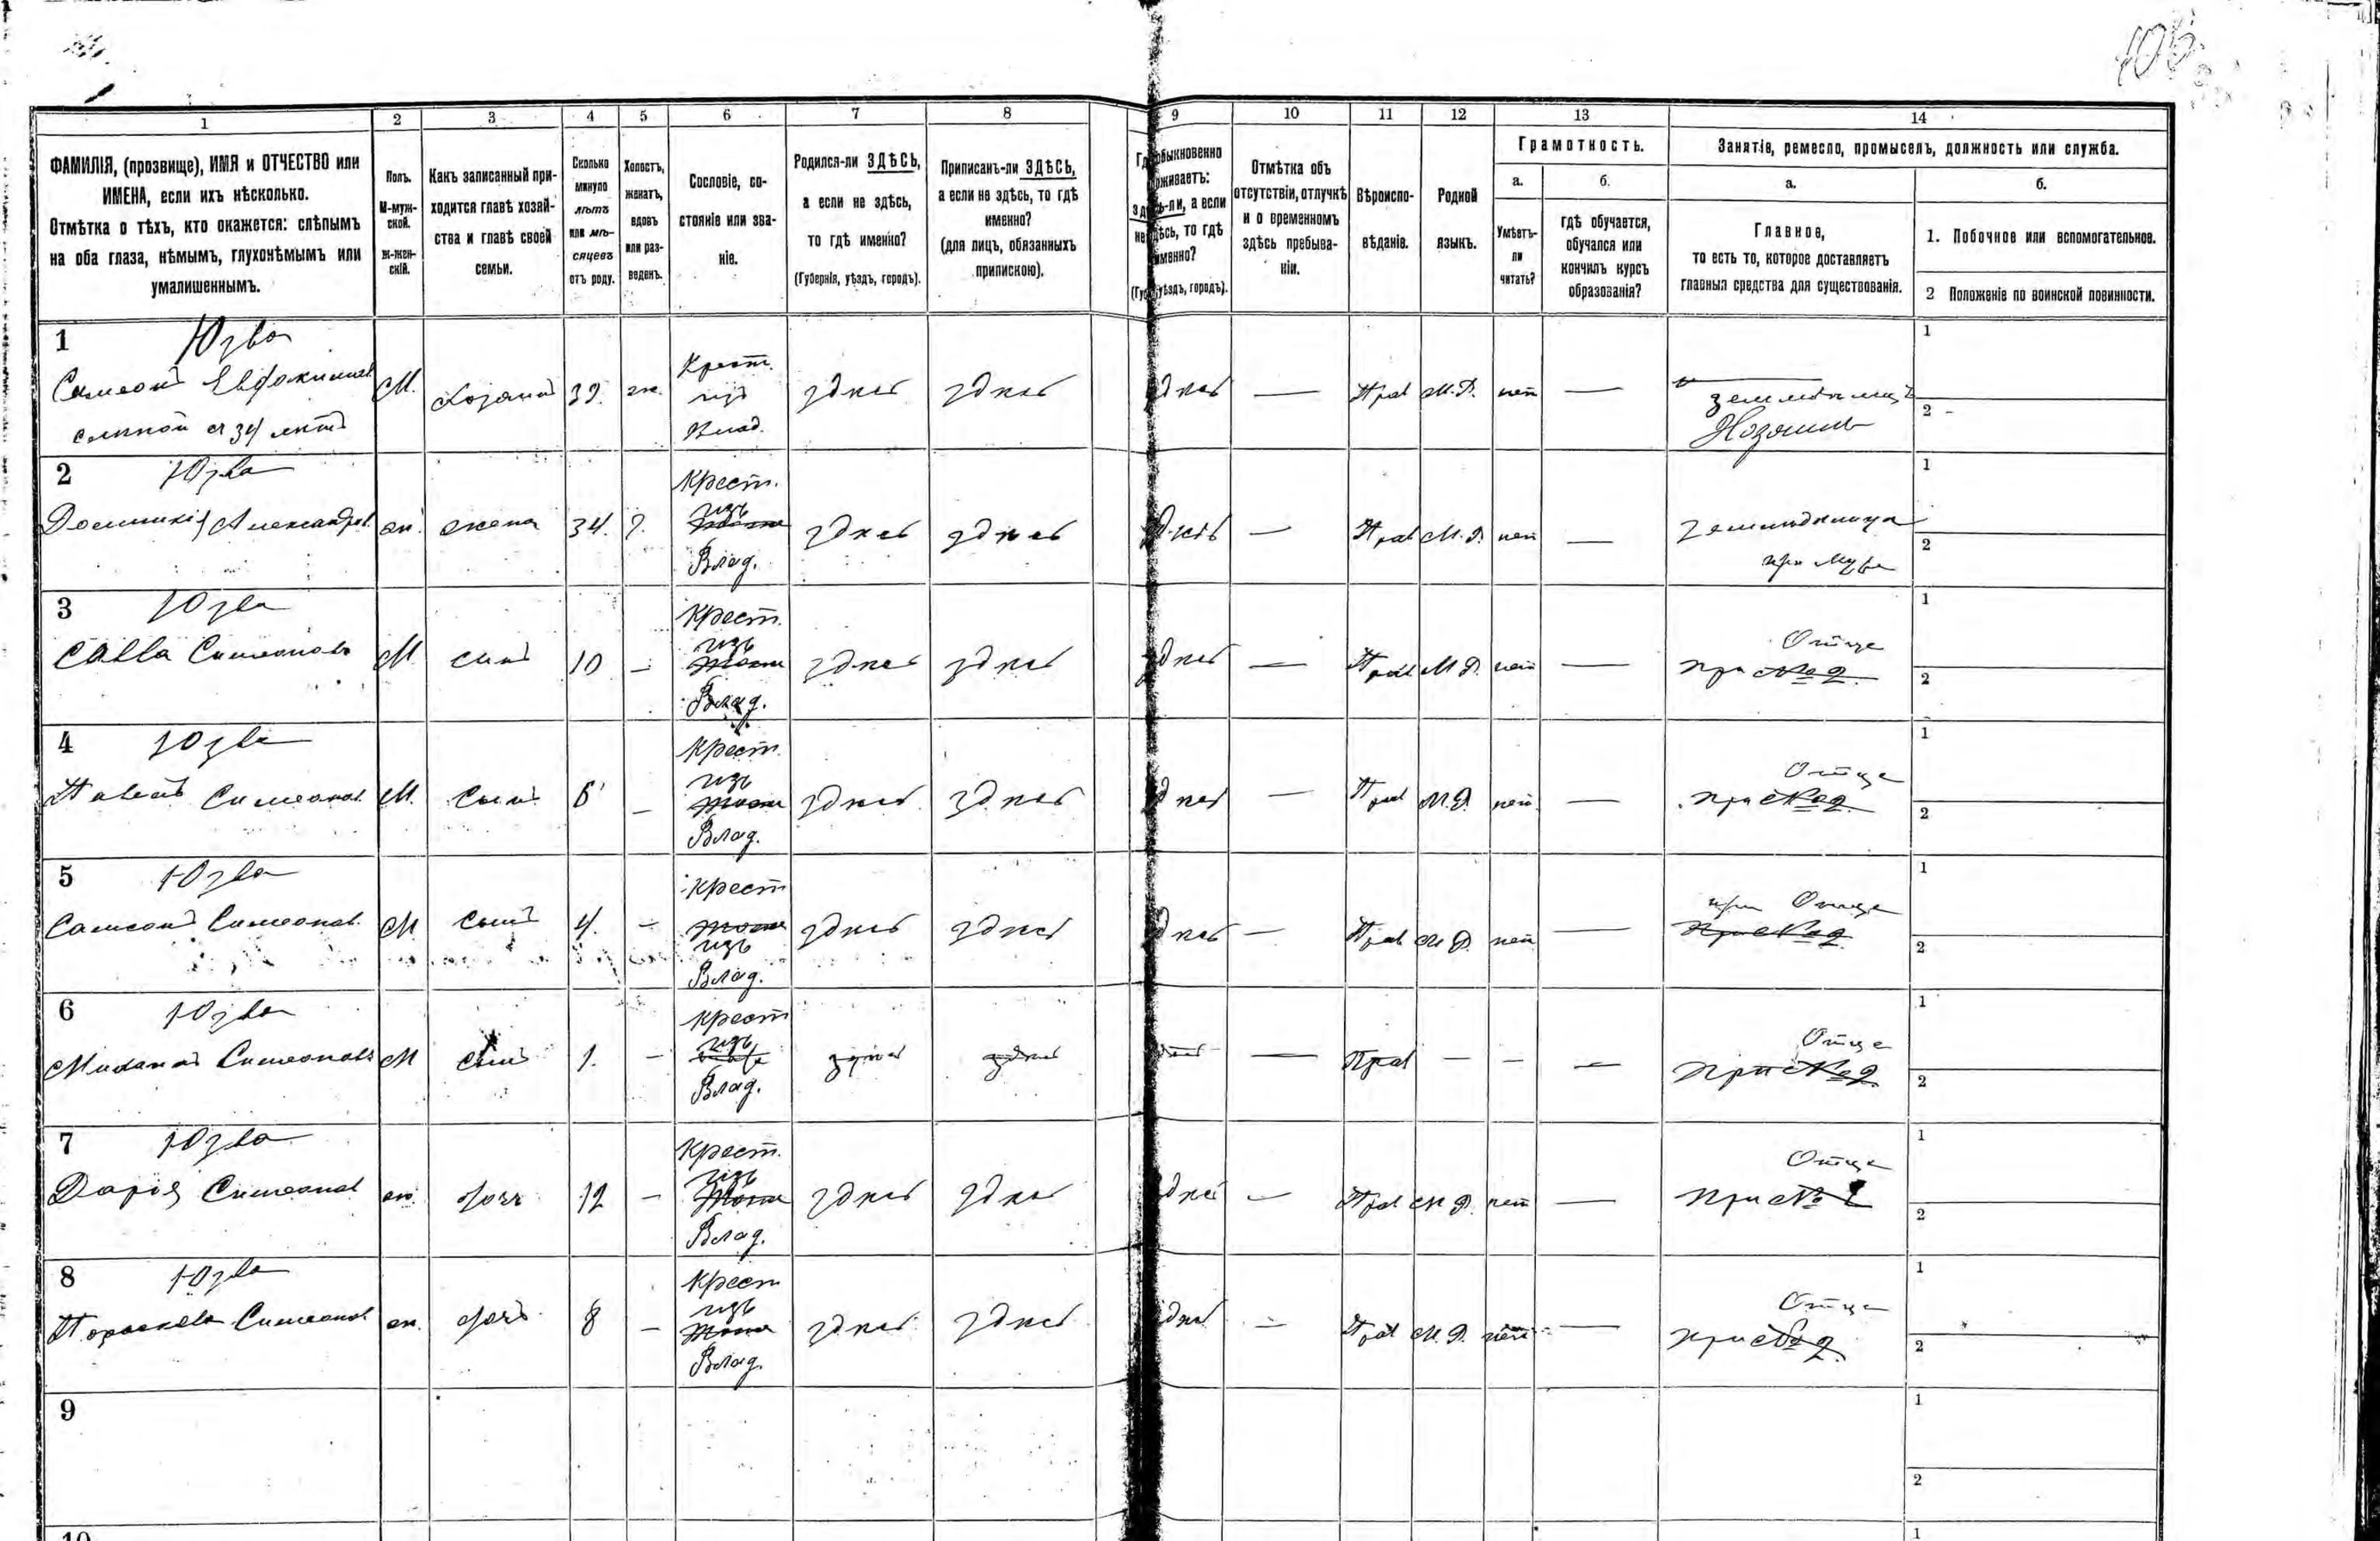 105
1
2
3
4
5
6
7
8
9
10
11
12
13
14
ФАМИЛІЯ, (прозвище), ИМЯ и ОТЧЕСТВО или
ИМЕНА, если ихъ нѣсколько.
Отмѣтка о тѣхъ, кто окажется: слѣпымъ
на оба глаза, нѣмымъ, глухонѣмымъ или
умалишеннымъ.
Полъ.
М-муж-
ской.
Ж-жен-
скій.
Какъ записанный при-
ходится главѣ хозяй-
ства и главѣ своей
семьи.
Сколько
минуло
лѣтъ
или мѣ-
сяцевъ
отъ роду.
Холостъ,
женатъ,
вдовъ
или раз-
веденъ.
Сословіе, со-
стояніе или зва-
ніе.
Родился-ли ЗДѢСЬ,
а если не здѣсь,
то гдѣ именно?
(Губернія, уѣздъ, городъ).
Приписанъ-ли ЗДѢСЬ,
а если не здѣсь, то гдѣ
именно?
(для лицъ, обязанныхъ
припискою).
обыкновенно
живаетъ:
ли, а если
здѣсь, то гдѣ
именно?
уѣздъ, городъ).
Отмѣтка объ
отсутствіи, отлучкѣ
и о временномъ
здѣсь пребыва-
ніи.
Вѣроиспо-
вѣданіе.
Родной
языкъ.
Грамотность.
а.
Умѣетъ-
ли
читать?
б.
гдѣ обучается,
обучался или
кончилъ курсъ
образованія?
Занятіе, ремесло, промыселъ, должность или служба.
а.
Главное,
то есть то, которое доставляетъ
главныя средства для существованія.
б.
1. Побочное или вспомогательное.
2 Положеніе по воинской повинности.
1 Юзва
Симеонъ Евдокимов.
слѣпой съ 34 лѣтъ
М. Хозяинъ 39. ж.
Крест.
изъ
Влад.
здѣсь здѣсь здѣсь — Прав М.Р. нет —
земледѣлецъ
Хозяинъ
1
2 -
2 Юзва
Александров. ж. жена 34. З.
Крест.
изъ
Влад.
здѣсь здѣсь здѣсь — Прав М.Р. нет —
земледѣлица
при мужѣ
1
2
3 Юзва
Савва Симеоновъ М сынъ 10 —
Крест.
изъ
Влад.
здѣсь здѣсь здѣсь — Прав М.Р. нет —
Отце
при № 2.
1
2
4 Юзва
Павелъ Симеонов. М. Сынъ 6 —
Крест.
изъ
Влад.
здѣсь здѣсь здѣсь — Прав М.Р. нет —
Отце
при № 2.
1
2
5 Юзва
Самсонъ Симеонов. М Сынъ 4. —
Крест
изъ
Влад.
здѣсь здѣсь здѣсь — Прав М Р. нет —
при Отце
при № 2
1
2
6 Юзва
Симеоновъ М сынъ 1. —
Крест
изъ
Влад.
здѣсь здѣсь здѣсь — Прав — — —
Отце
при № 2
1
2
7 Юзва
Дарія Симеонов ж. дочь 12 —
Крест.
изъ
Влад.
здѣсь здѣсь здѣсь — Прав М Р. нет —
Отце
при №
1
2
8 Юзва
Параскева Симеонов ж. дочь 8 —
Крест
изъ
Влад.
здѣсь здѣсь здѣсь — Прав М.Р. нет —
Отце
при № 2.
1
2
9
1
2
10
1